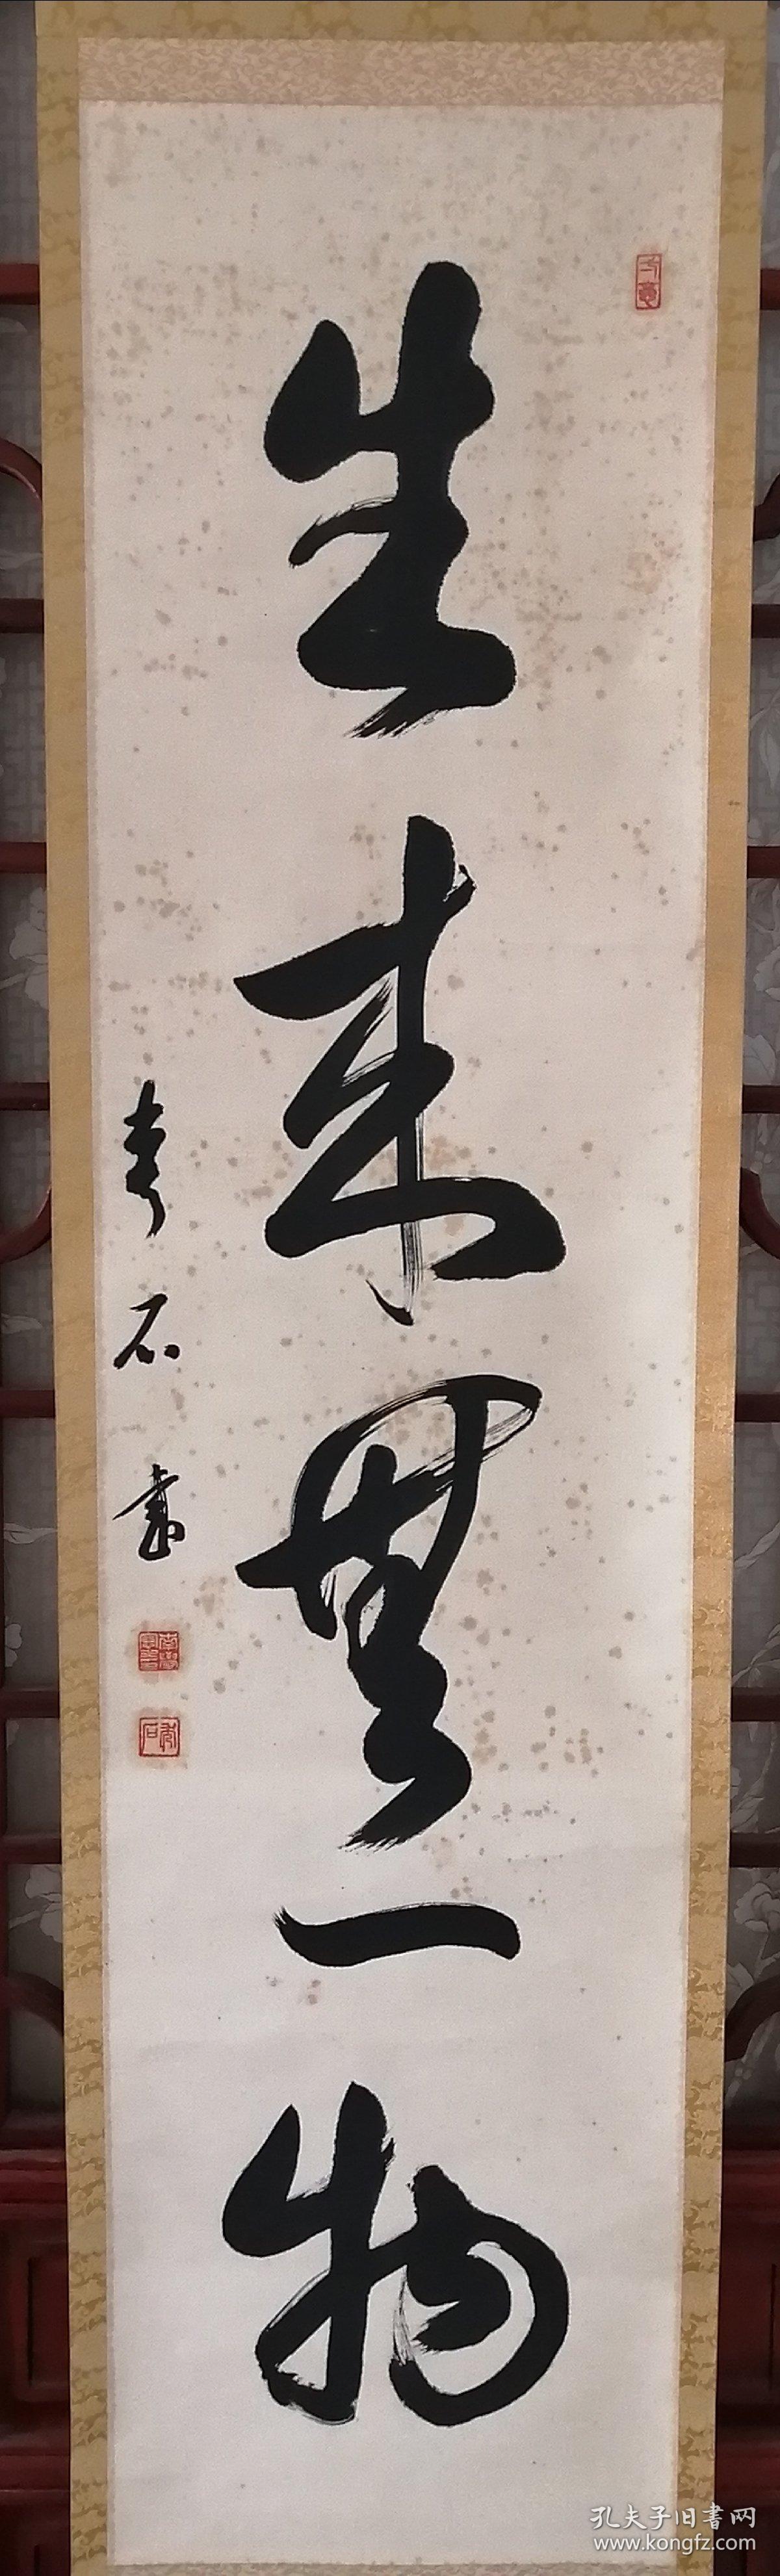 生来無一物
石書
孔夫子旧書网
www.kongfz.com